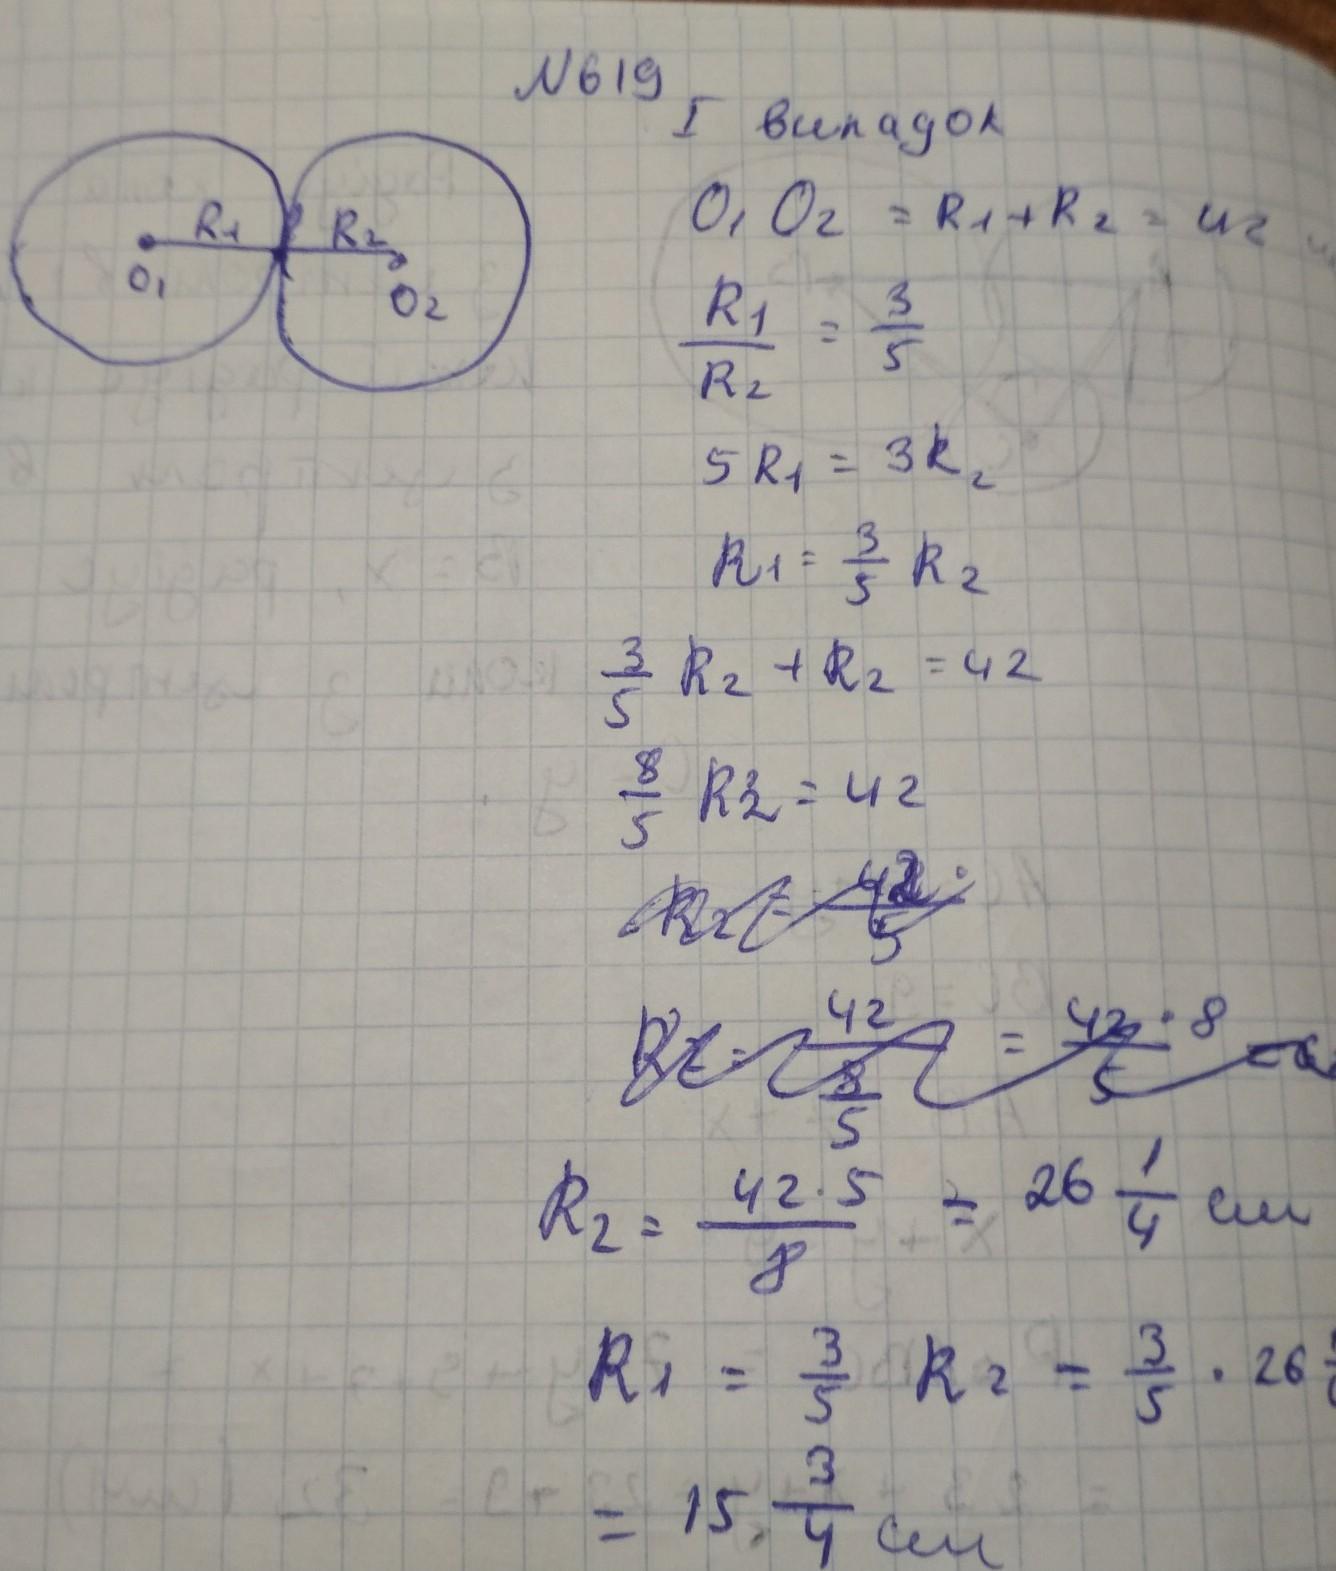 N619
I випадок
R1 R2
O1 O2
O1 O2 = R1 + R2 = 42
R1/R2 = 3/5
5 R1 = 3R2
R1 = 3/5 R2
3/5 R2 + R2 = 42
8/5 R2 = 42
R2 = 42/5
= 42 · 8 / 5
R2 = 42 · 5 / 8 = 26 1/4 см
R1 = 3/5 R2 = 3/5 · 26
= 15 3/4 см